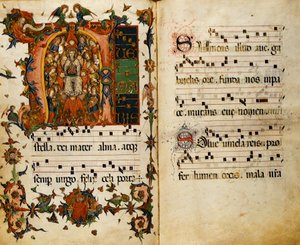 stella. dei mater alma. atq
semp uirgo. felix celi porta
Sumens illud aue. ga
brielis ore. funda nos in pa
ce. mutans eue nomen.
Solue uincla reis. pro
fer lumen cecis. mala